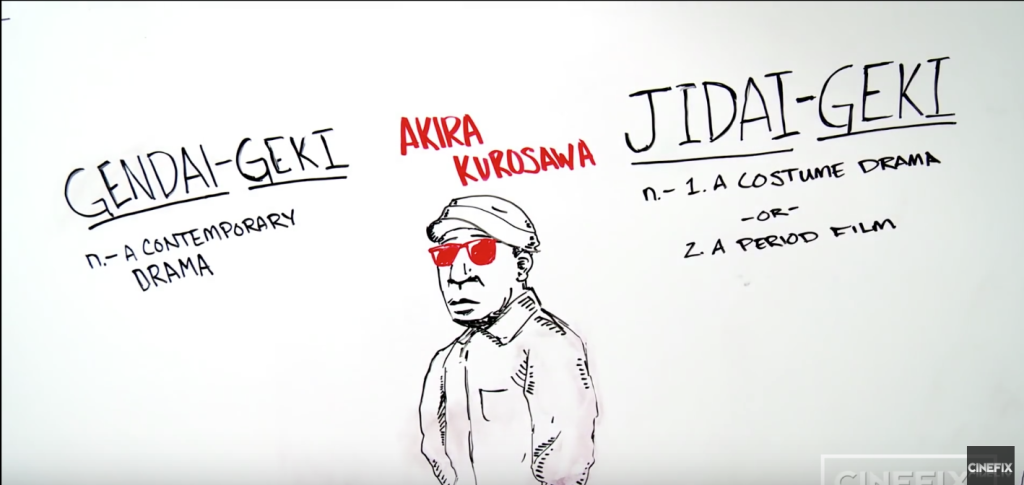 GENDAI-GEKI
n.- A CONTEMPORARY
DRAMA
AKIRA
KUROSAWA
JIDAI-GEKI
n.- 1. A COSTUME DRAMA
-OR-
2. A PERIOD FILM
CINEFIX
CINEFIX